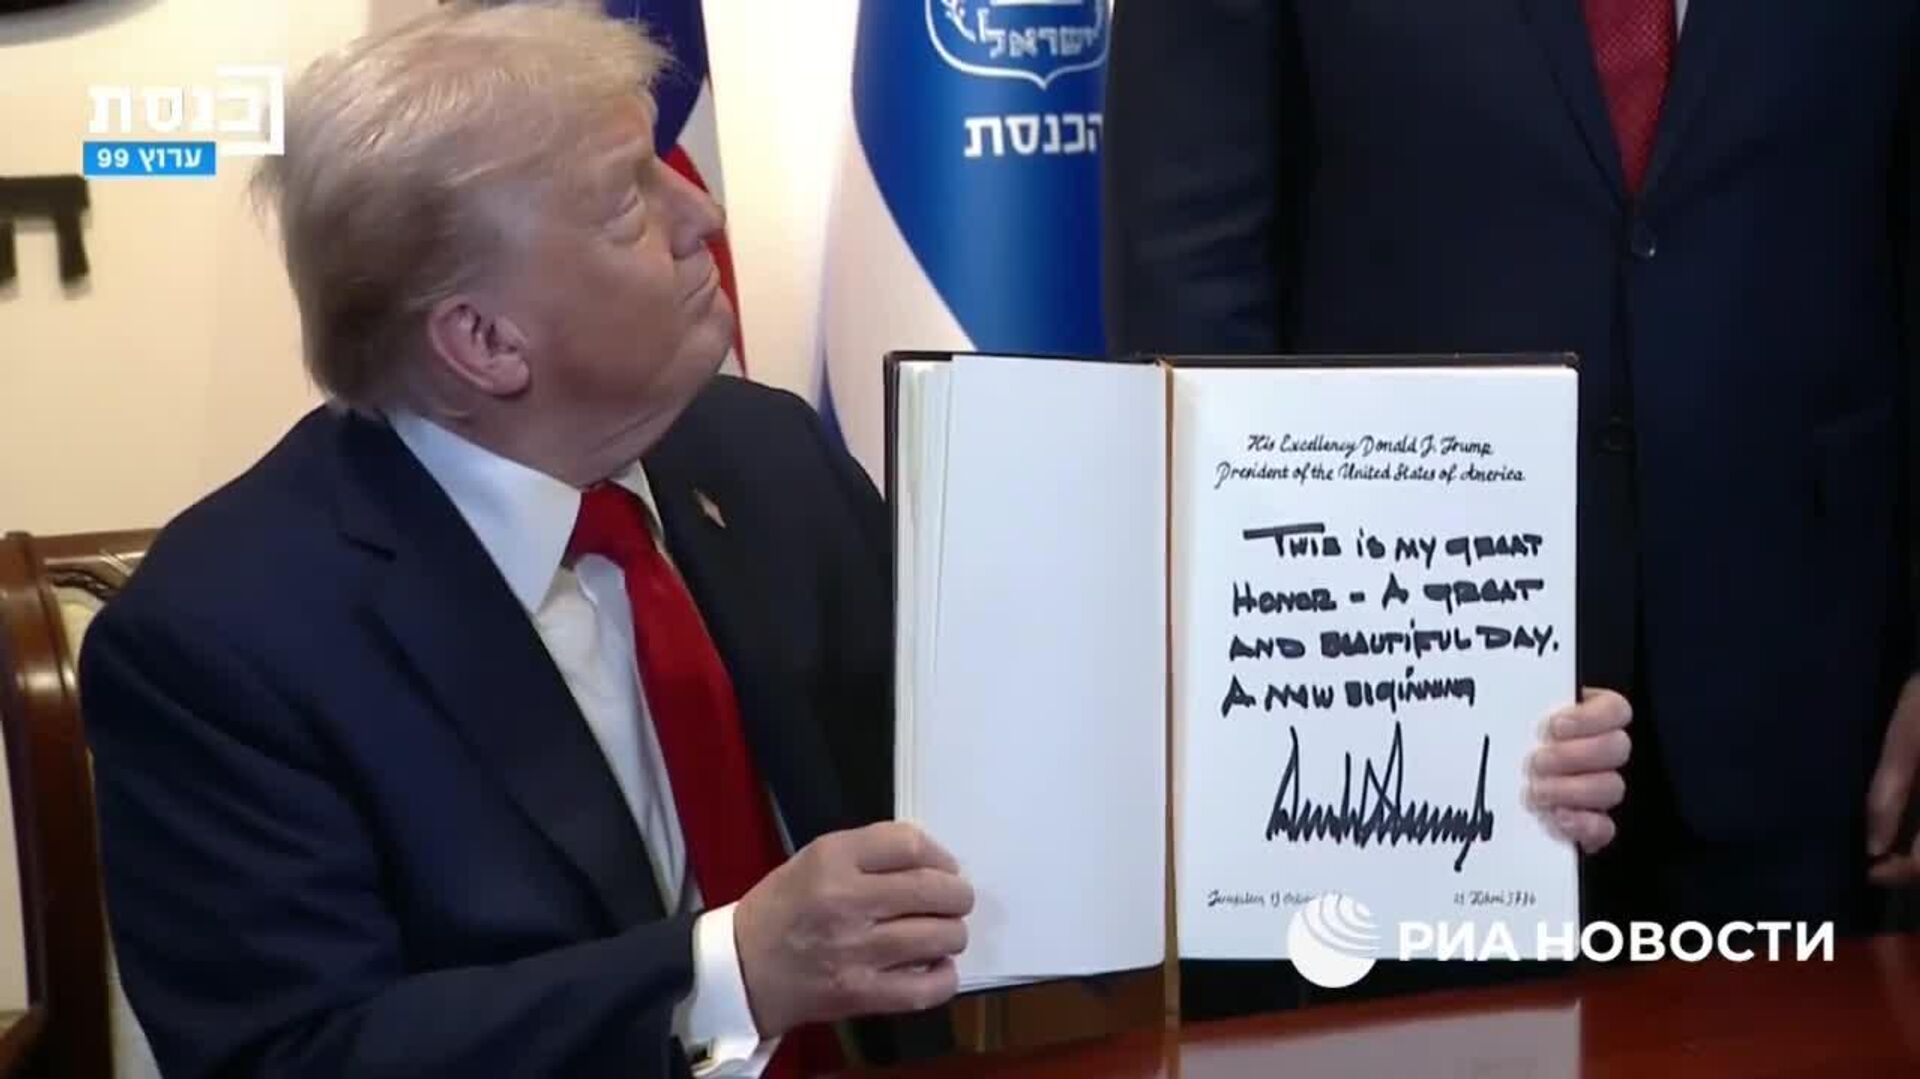 כנסת
ערוץ 99
ישראל
הכנסת
His Excellency Donald J. Trump
President of the United States of America
THIS IS MY GREAT
HONOR - A GREAT
AND BEAUTIFUL DAY.
A NEW BIGINNING
Jerusalem, 13
5786
РИА НОВОСТИ